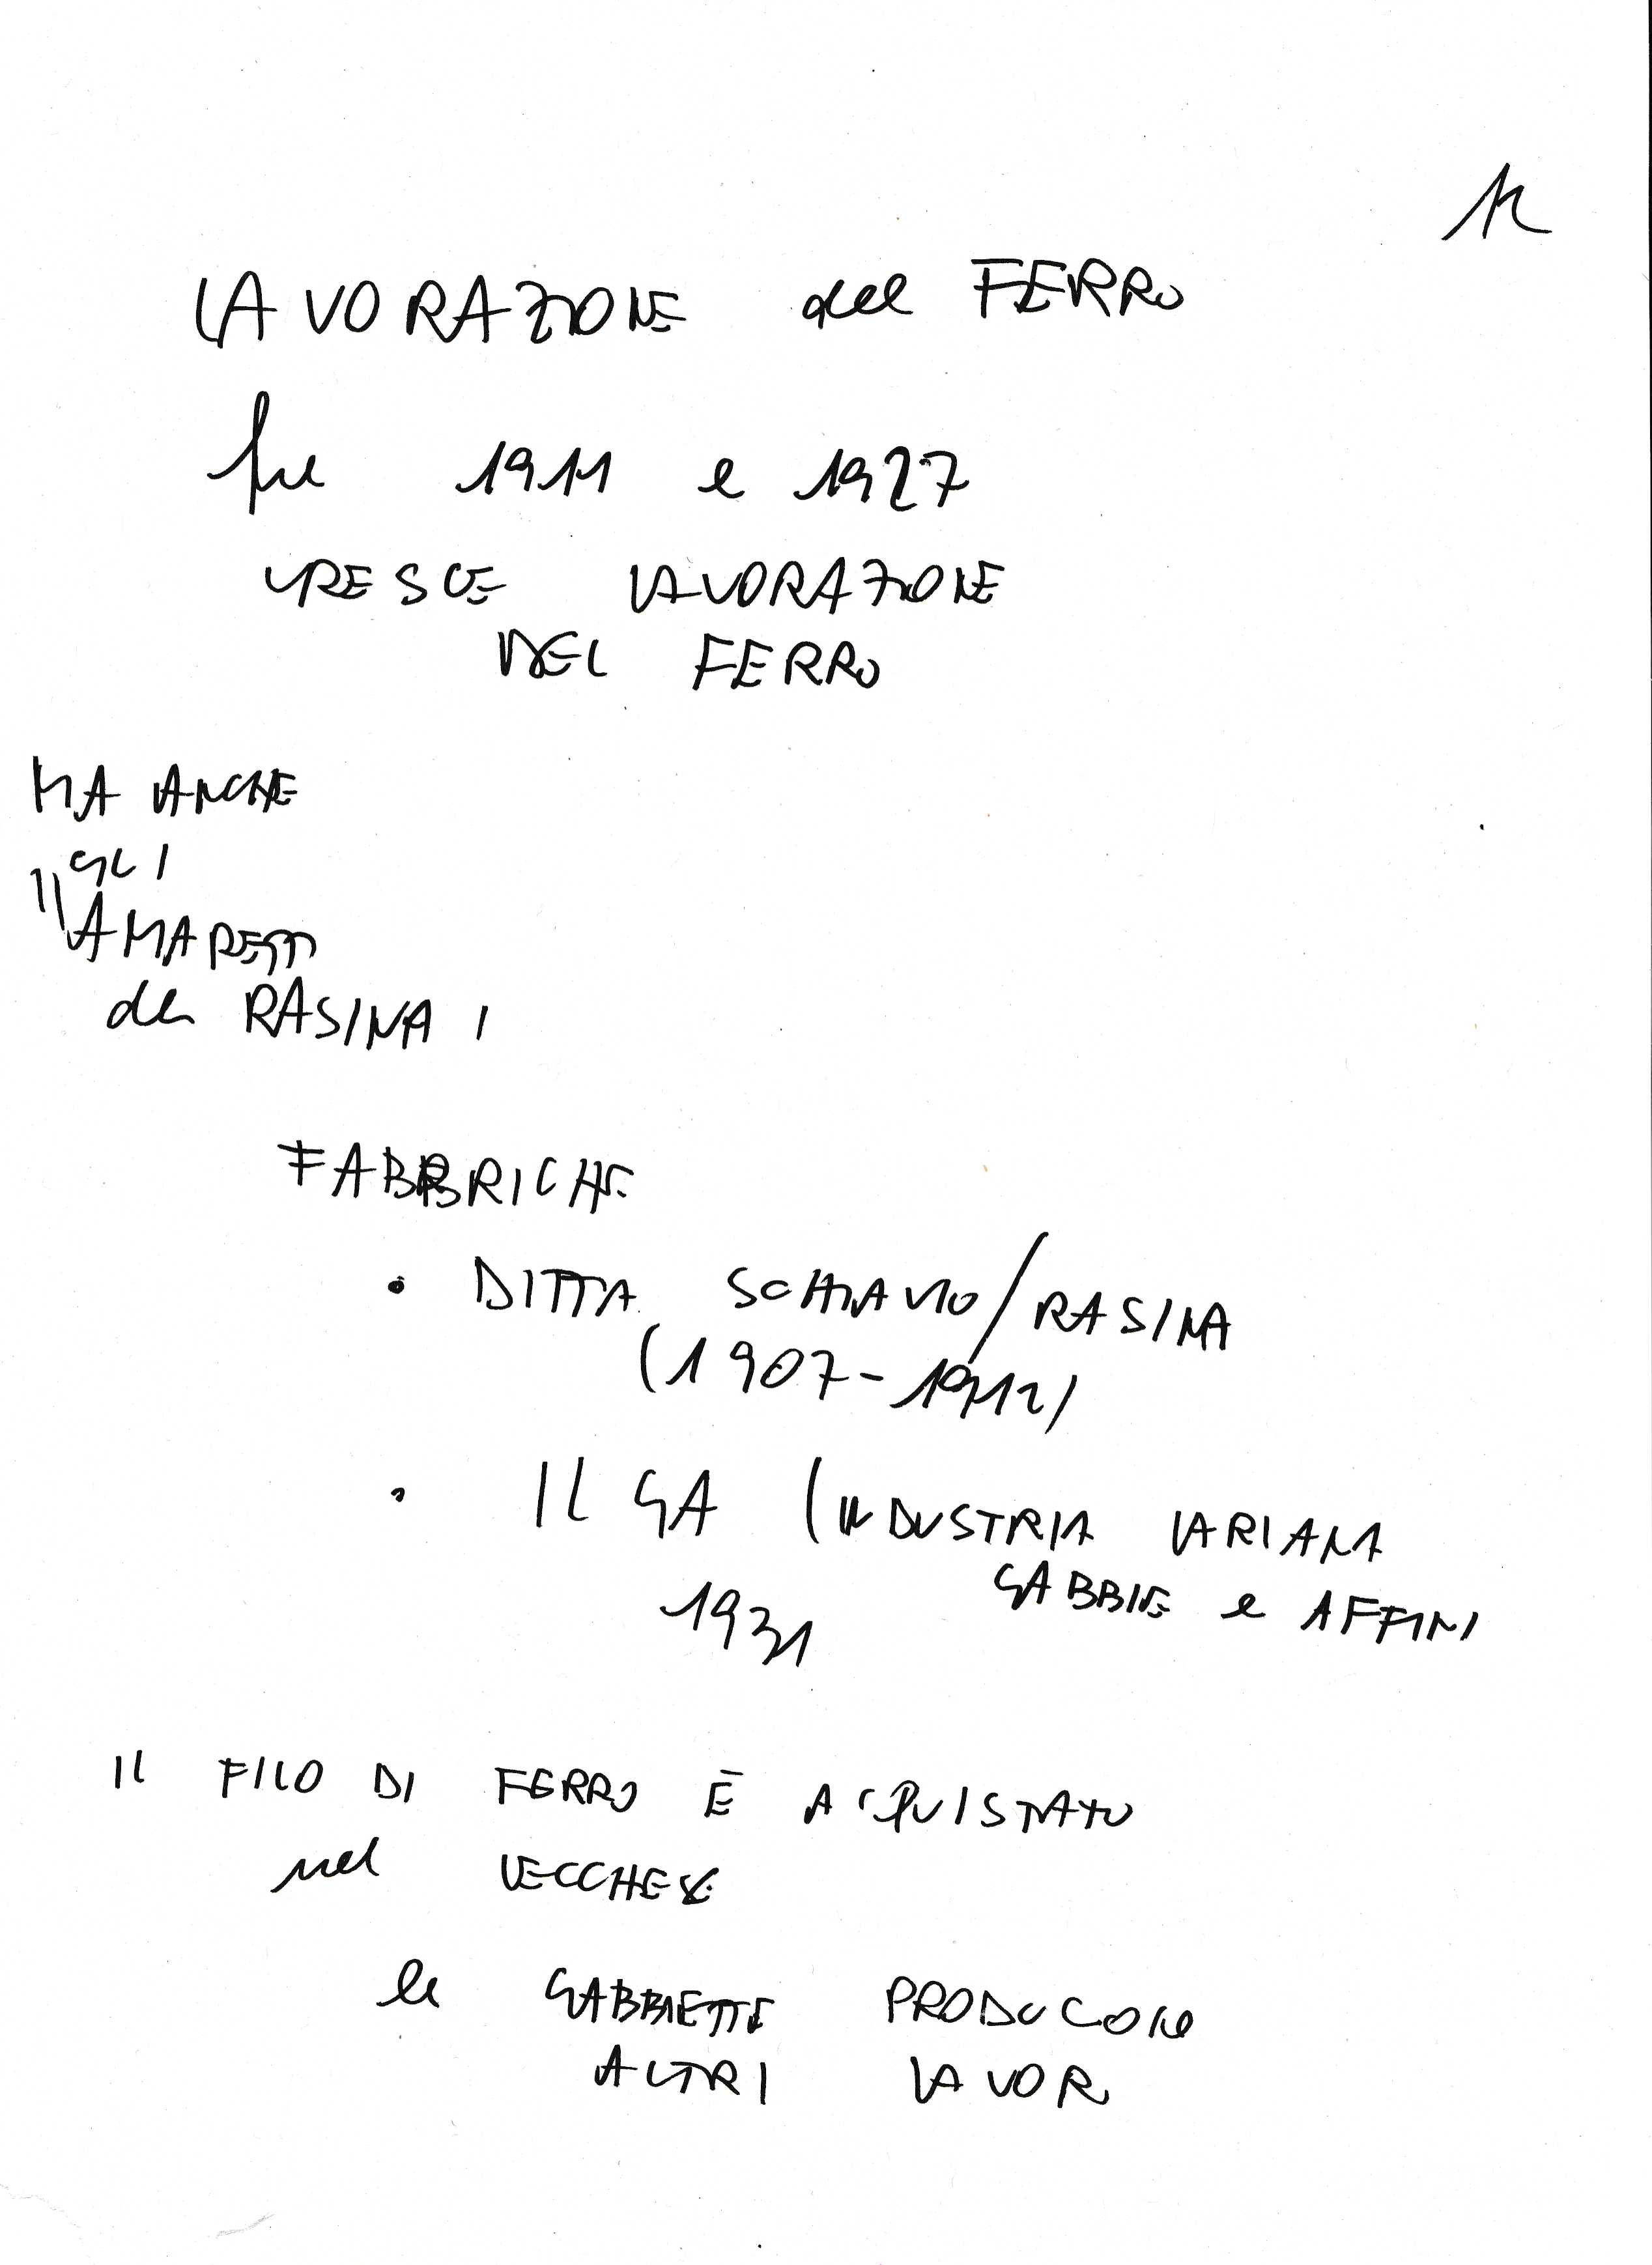 12
LAVORAZIONE del FERRO
fra 1911 e 1927
CRESCE LAVORAZIONE
DEL FERRO
MA ANCHE
GLI
AMARETTI
da RASINA
FABBRICHE
• DITTA SCHIAVIO/RASINA
(1907-1912)
• ILGA (INDUSTRIA LARIANA
GABBIE e AFFINI
1931
IL FILO DI FERRO È ACQUISTATO
nel LECCHESE
le GABBIETTE PRODUCONO
ALTRI LAVORI